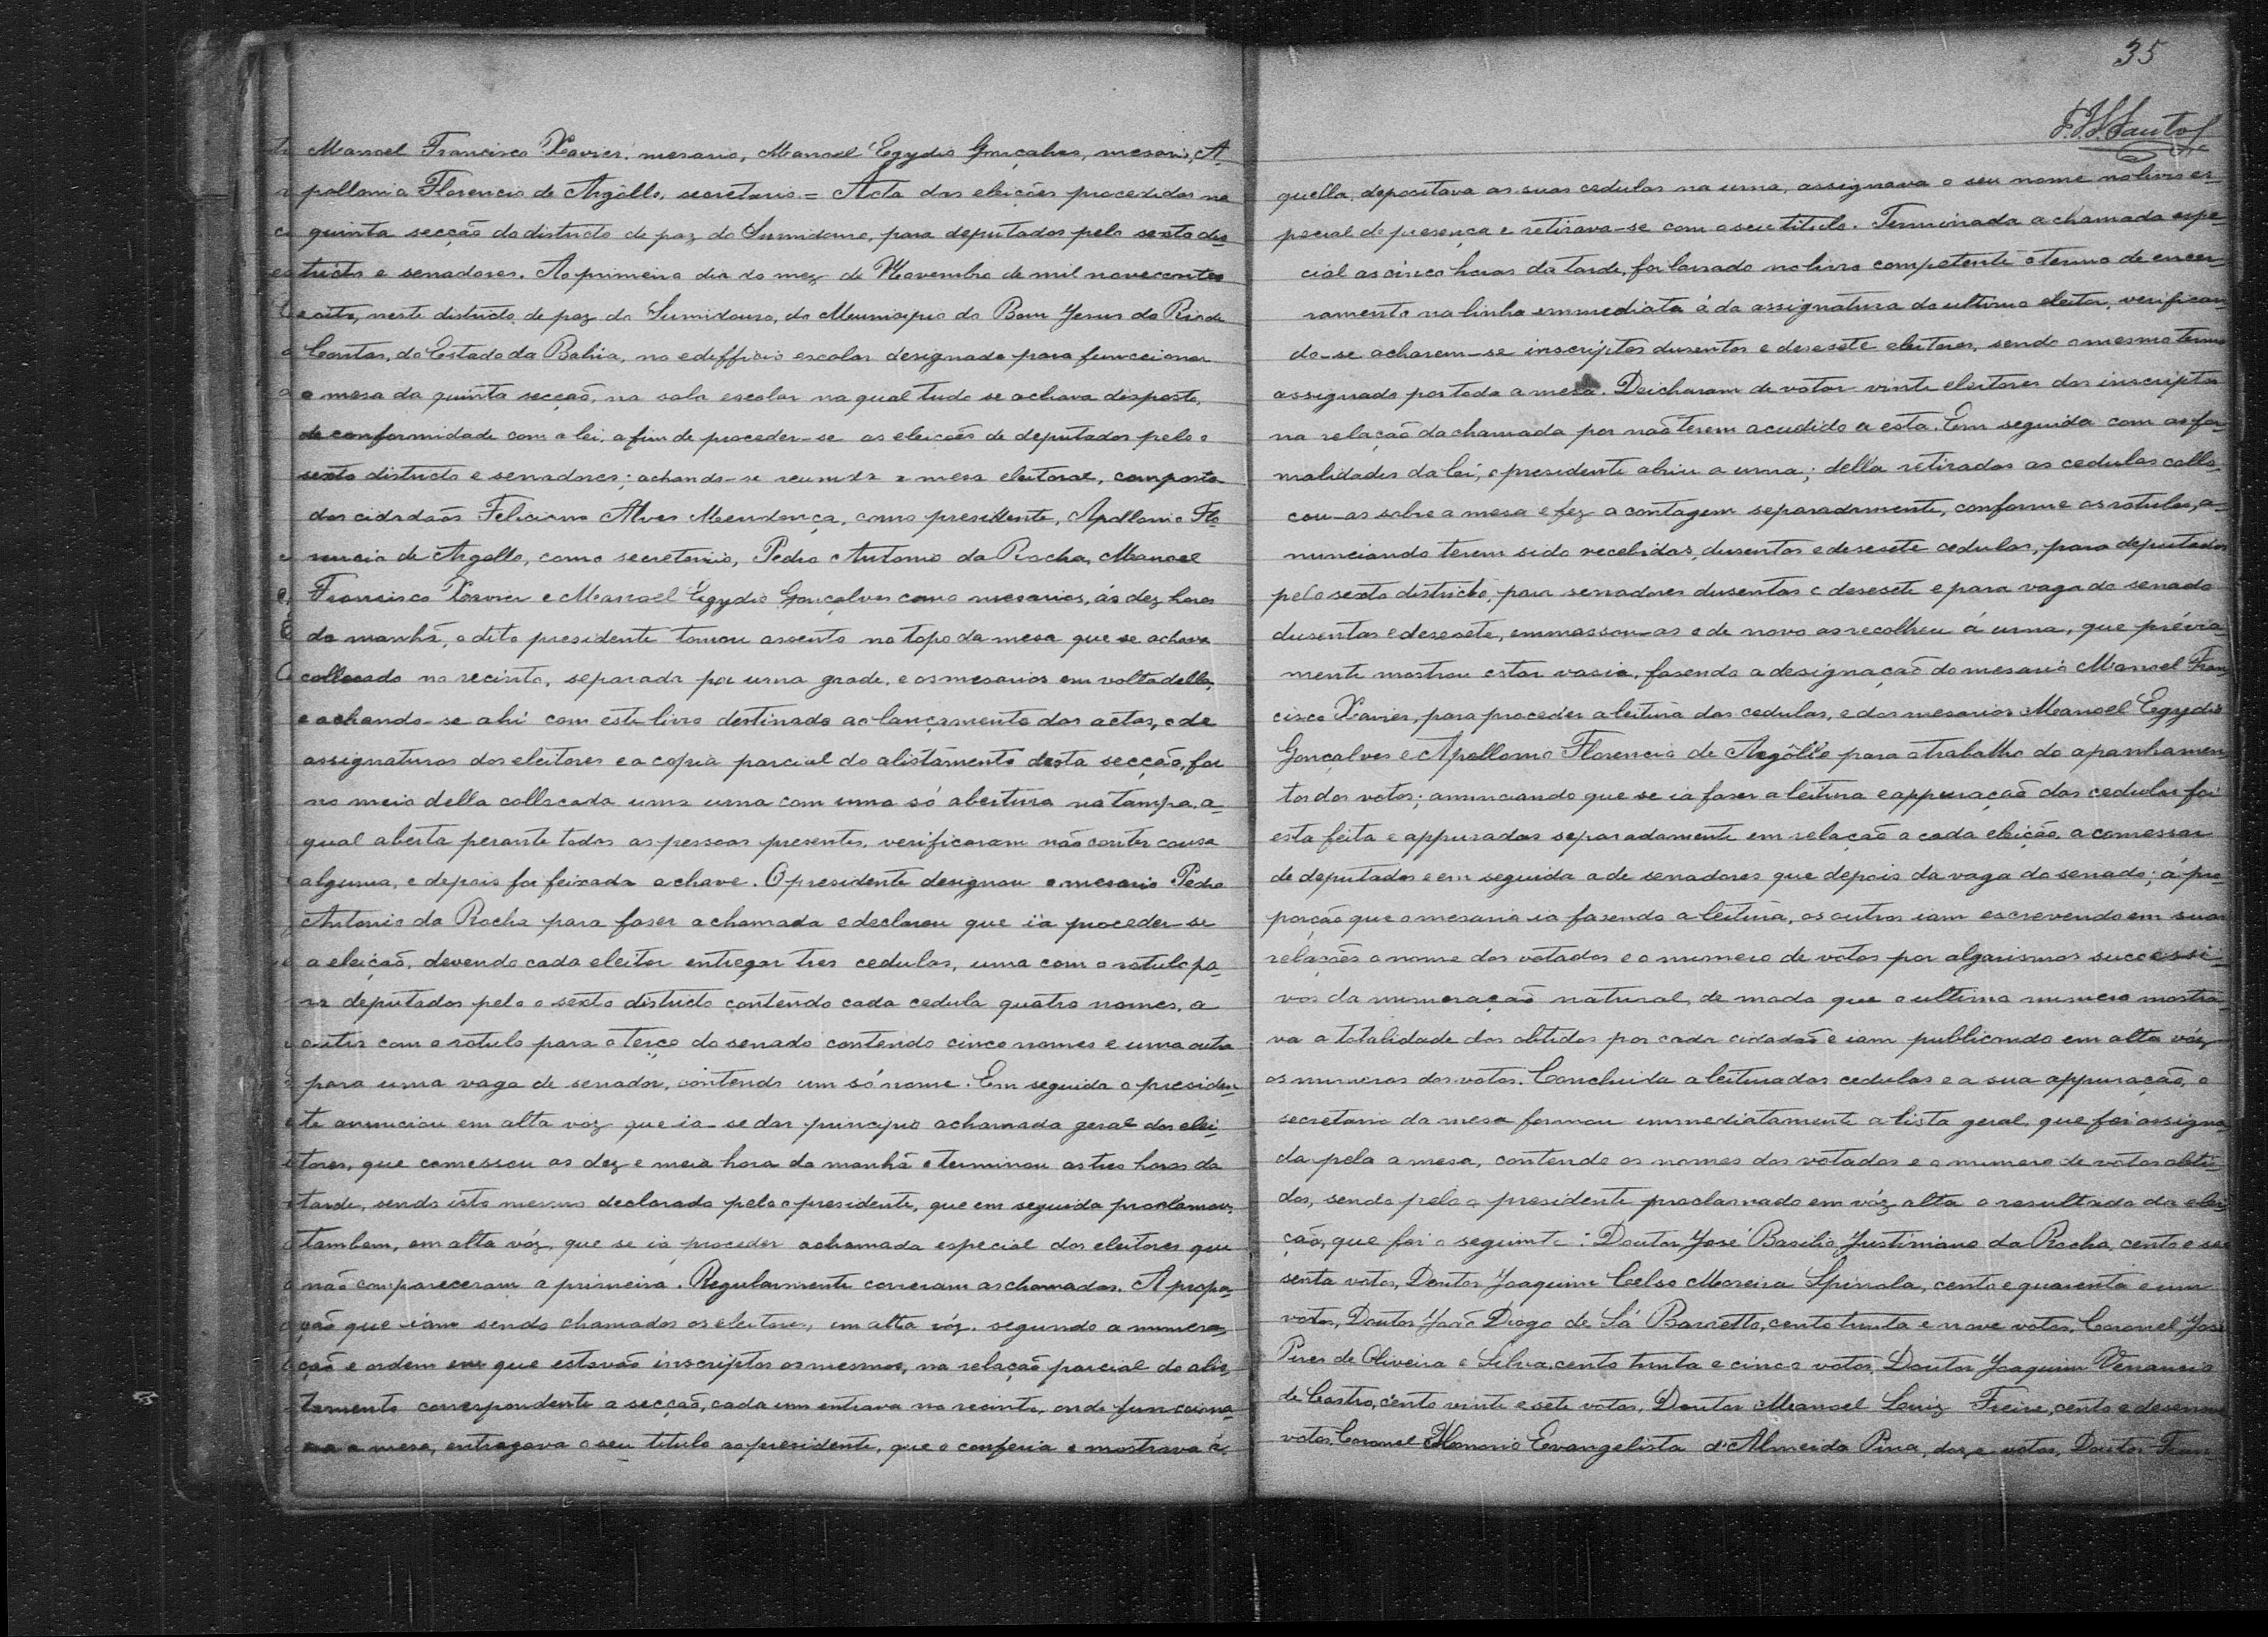 Manoel Francisco Xavier, mesario, Manoel Egydio Gonçalves, mesario, A-
pollonio Florencio de Argôllo, secretario. = Acta das eleições procedidas na
quinta secção do districto de paz do Sumidouro, para deputados pelo sexto dis-
tricto e senadores. Ao primeiro dia do mez de Novembro de mil novecentos
e oito, neste districto de paz do Sumidouro, do Municipio do Bom Jesus do Rio de
Contas, do Estado da Bahia, no edifficio escolar designado para funccionar
a mesa da quinta secção, na sala escolar na qual tudo se achava disposto,
de conformidade com a lei, a fim de proceder-se as eleições de deputados pelo o
sexto districto e senadores; achando-se reunida a mesa eleitoral, composta
dos cidadãos Feliciano Alves Mendonça, como presidente, Apollonio Flo-
rencio de Argollo, como secretario, Pedro Antonio da Rocha, Manoel
Francisco Xavier e Manoel Egydio Gonçalves como mesarios, ás dez horas
da manhã, o dito presidente tomou assento no topo da mesa que se achava
collocado no recinto, separada por uma grade, e os mesarios em volta della,
e achando-se ahi com este livro destinado ao lançamento das actas, o de
assignaturas dos eleitores e a copia parcial do alistamento desta secção, foi
no meio della collocada uma urna com uma só abertura na tampa, a
qual aberta perante todas as pessoas presentes, verificaram não conter cousa
alguma, e depois foi feixada a chave. O presidente designou o mesario Pedro
Antonio da Rocha para faser a chamada e declarou que ia proceder-se
a eleição, devendo cada eleitor entregar tres cedulas, uma com o rotulo pa-
ra deputados pelo o sexto districto contendo cada cedula quatro nomes, a
outra com o rotulo para o terço do senado contendo cinco nomes e uma outra
para uma vaga de senador, contendo um só nome. Em seguida o presiden-
te anunciou em alta voz que ia-se dar principio a chamada geral dos elei-
tores, que comessou as dez e meia hora da manhã e terminou as tres horas da
tarde, sendo isto mesmo declarado pelo o presidente, que em seguida proclamou,
tambem, em alta vóz, que se ia proceder a chamada especial dos eleitores que
não compareceram a primeira. Regularmente correram as chamadas. A propo-
ção que iam sendo chamados os eleitores, em alta vóz, segundo a numera-
ção e ordem em que estavão inscriptos os mesmos, na relação parcial do alis-
tamento correspondente a secção, cada um entrava no recinto, onde funcciona-
va a mesa, entregava o seu titulo ao presidente, que o conferia e mostrava á-
35
quella, depositava as suas cedulas na urna, assignava o seu nome no livro es-
pecial de presença e retirava-se com o seu titulo. Terminada a chamada espe-
cial as cinco horas da tarde, foi lavrado no livro competente o termo de encer-
ramento na linha emmediata á da assignatura do ultimo eleitor, verifican-
do-se acharem-se inscriptos dusentos e desesete eleitores, sendo o mesmo termo
assignado por toda a mesa. Deicharam de votar vinte eleitores dos inscriptos
na relação da chamada por não terem acudido a esta. Em seguida com as for-
malidades da lei, o presidente abriu a urna; della retirados as cedulas collo-
cou-as sobre a mesa e fez a contagem separadamente, conforme os rotulos, a-
nunciando terem sido recebidas, dusentos e desesete cedulas, para deputados
pelo sexto districto, para senadores dusentos e desesete e para vaga do senado
dusentos e desesete, emmassou-as e de novo as recolheu á urna, que prévia-
mente mostrou estar vasia, fasendo a designação do mesario Manoel Fran-
cisco Xavier, para proceder a leitura das cedulas, e dos mesarios Manoel Egydio
Gonçalves e Apollonio Florencio de Argôllo para o trabalho do apanhamen-
to dos votos; anunciando que se ia faser a leitura e appuração das cedulas foi
esta feita e appuradas separadamente em relação a cada eleição, a comessar
de deputados e em seguida a de senadores que depois da vaga do senado; á pro-
porção que o mesario ia fasendo a leitura, os outros iam escrevendo em suas
relações o nome dos votados e o numero de votos por algarismos successi-
vos da numeração natural, de modo que o ultimo numero mostra-
va a totalidade dos obtidos por cada cidadão e iam publicando em alta vóz
os numeros dos votos. Concluida a leitura das cedulas e a sua appuração, o
secretario da mesa formou emmediatamente a lista geral, que foi assigna-
da pela a mesa, contendo os nomes dos votados e o numero de votos obti-
dos, sendo pelo o presidente proclamado em vóz alta o resultado da elei-
ção, que foi o seguinte: Doutor José Basilio Justiniano da Rocha, cento e ses-
senta votos, Doutor Joaquim Celso Moreira Spinola, cento e quarenta e um
votos, Doutor João Diogo de Sá Barretto, cento trinta e nove votos, Coronel José
Pires de Oliveira e Silva, cento trinta e cinco votos, Doutor Joaquim Venancio
de Castro, cento vinte e sete votos, Doutor Manoel Luiz Freire, cento e desenove
votos, Coronel Honorio Evangelista d'Almeida Pina, doze votos, Doutor Fran-